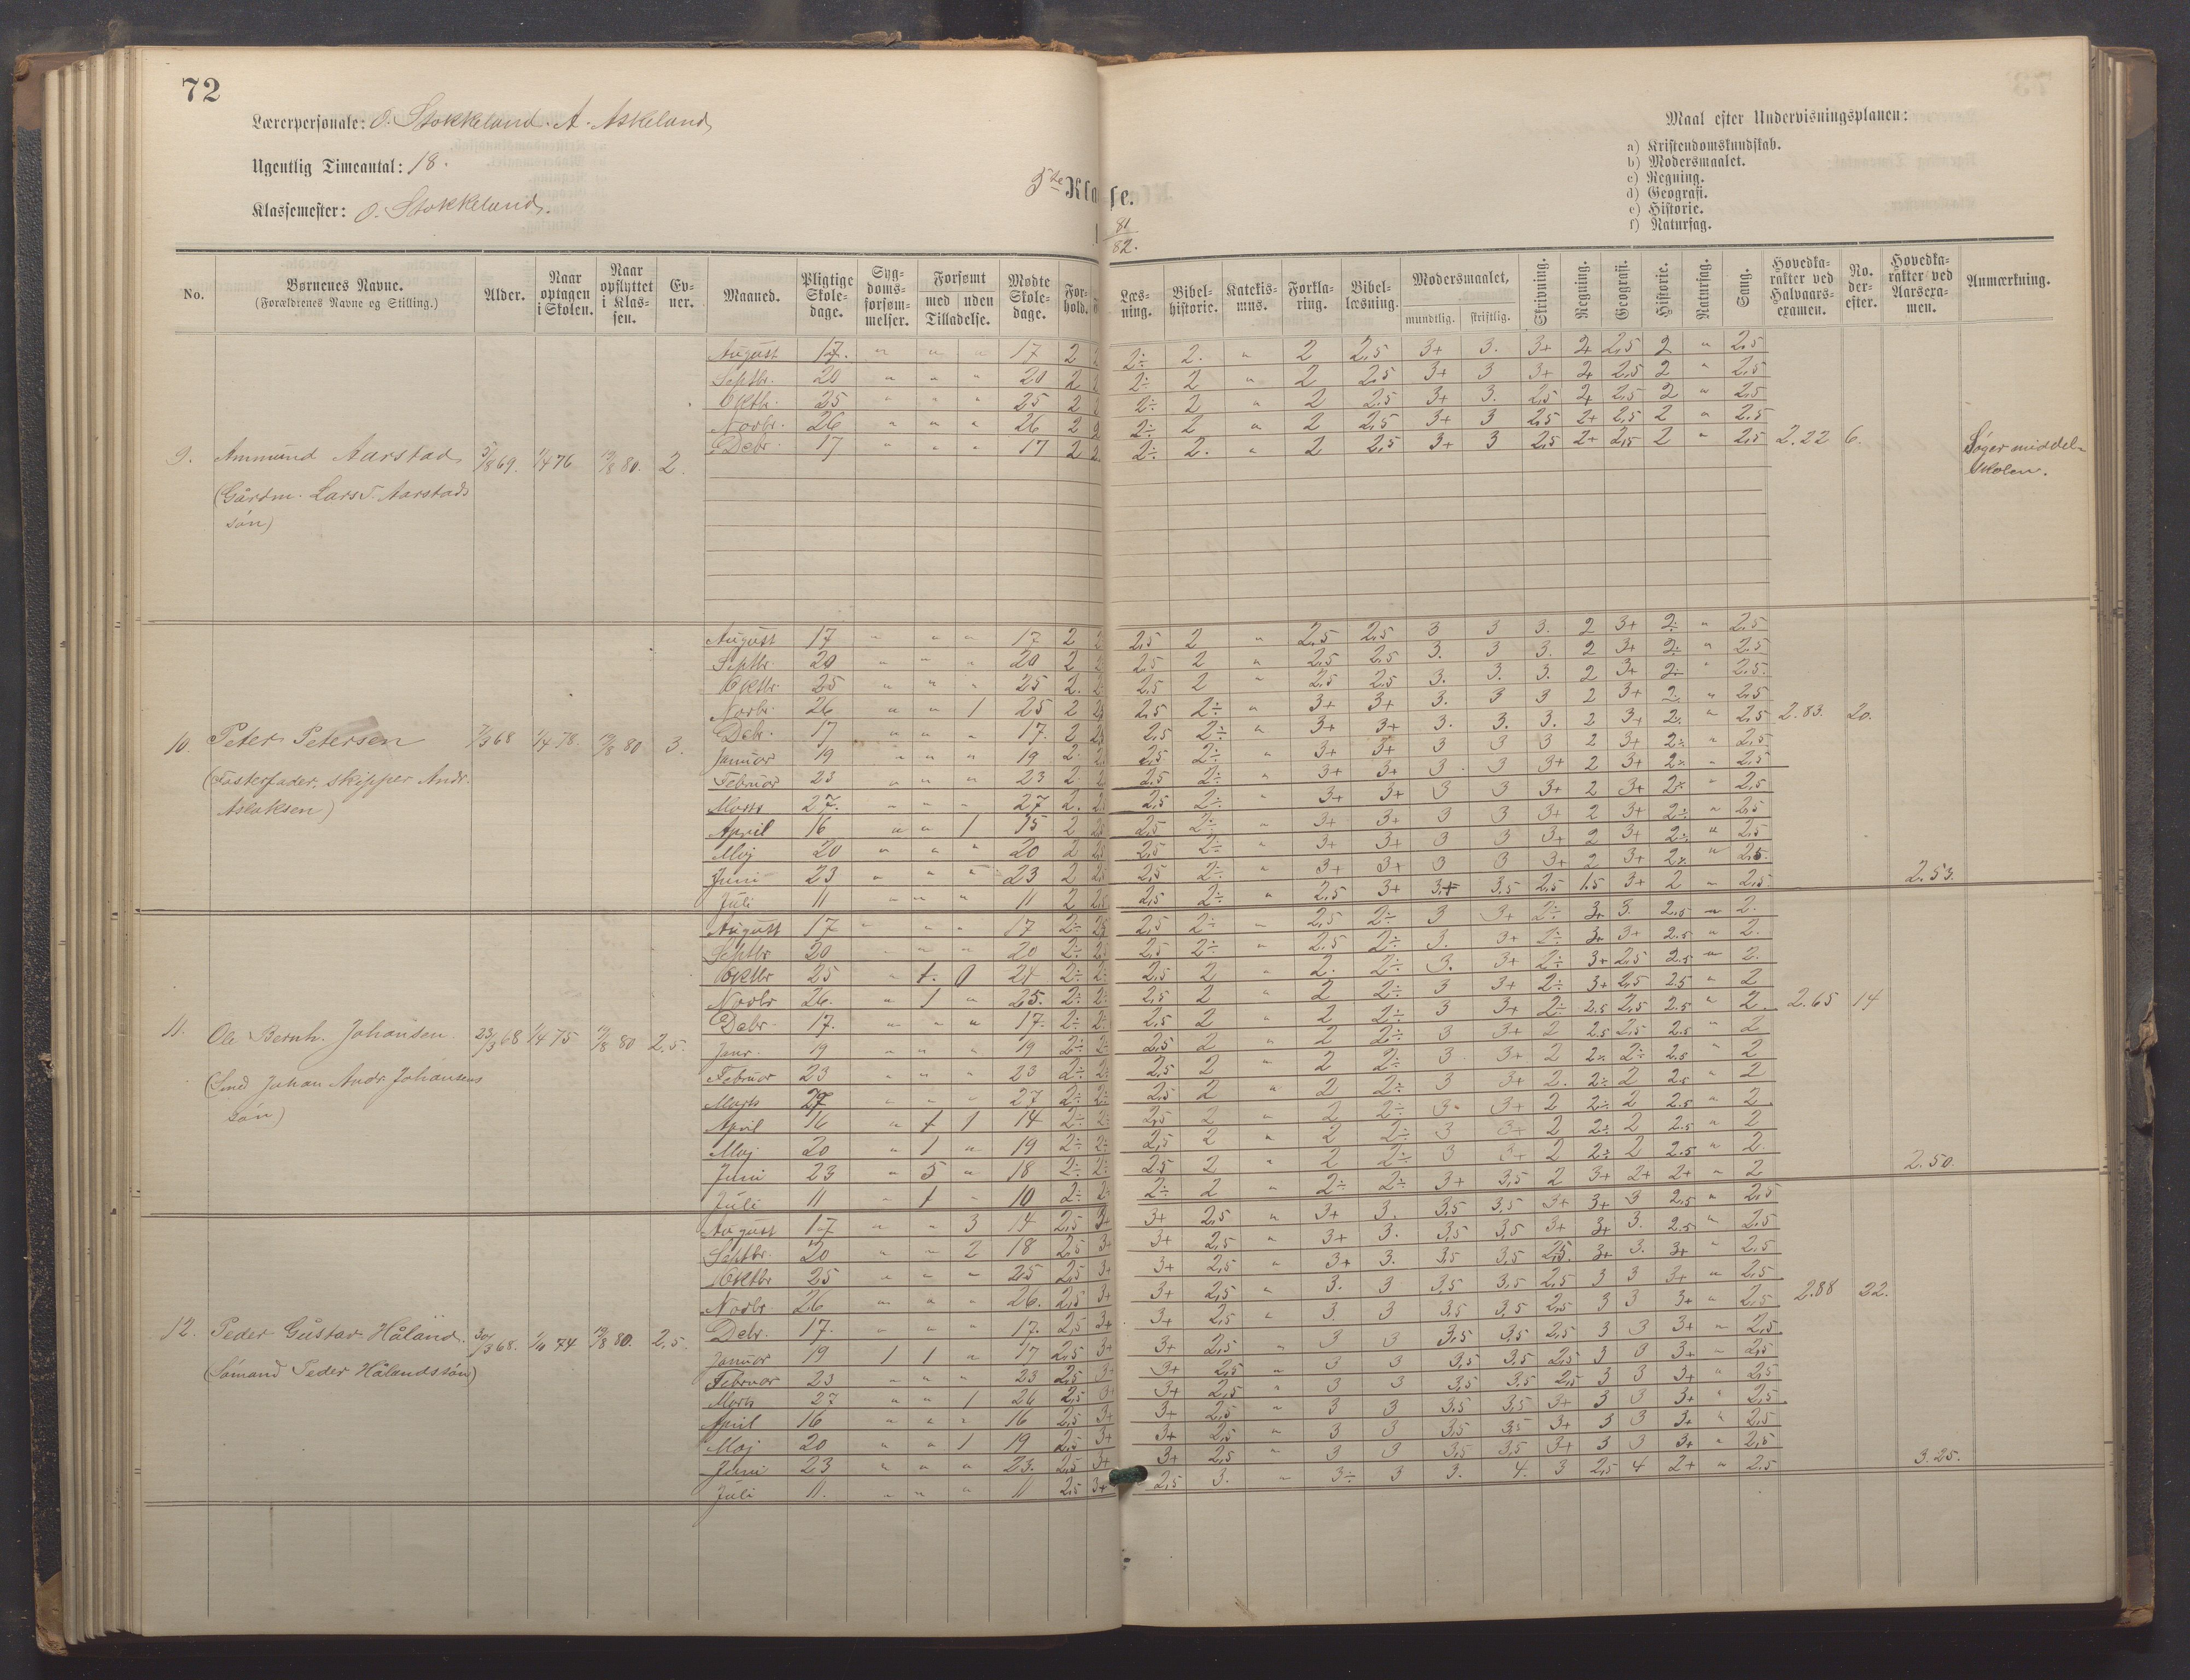 72
Lærerpersonale: O. Stokkeland. A. Askeland
Ugentlig Timeantal: 18.
Klassemester: O. Stokkeland.
5te Klasse.
81/82.
Maal efter Undervisningsplanen:
a) Kristendomskundskab.
b) Modersmaalet.
c) Regning.
d) Geografi.
e) Historie.
f) Naturfag.
No. | Børnenes Navne. (Forældrenes Navne og Stilling.) | Alder. | Naar optagen i Skolen. | Naar opflyttet i Klassen. | Evner. | Maaned. | Pligtige Skoledage. | Sygdomsforsømmelser. | Forsømt med uden Tilladelse. | Mødte Skoledage. | Forhold. | Læsning. | Bibelhistorie. | Katekismus. | Forklaring. | Bibellæsning. | Modersmaalet, mundtlig. skriftlig. | Skrivning. | Regning. | Geografi. | Historie. | Naturfag. | Sang. | Hovedkarakter ved Halvaarsexamen. | No. derefter. | Hovedkarakter ved Aarsexamen. | Anmærkning.
August 17. " " " 17 2 2÷ 2. " 2 2,5 3+ 3. 3+ 2 2,5 2 " 2,5
Septbr. 20 " " " 20 2 2÷ 2 " 2 2,5 3+ 3 3+ 2 2,5 2 " 2,5
Oktbr. 25 " " " 25 2 2÷ 2 " 2 2,5 3+ 3. 2,5 2 2,5 2 " 2,5
Novbr. 26 " " " 26 2 2÷ 2 " 2 2,5 3+ 3 2,5 2+ 2,5 2 " 2.5
9. Ammund Aarstad 5/8 69. 1/4 76 19/8 80. 2. Debr 17 " " " 17 2 2÷ 2. " 2 2,5 3+ 3 2,5 2+ 2,5 2 " 2,5 2.22 6. Søger middelskolen.
(Gårdm. Lars T. Aarstads
søn)
August 17 " " " 17 2 2,5 2 " 2,5 2,5 3 3 3. 2 3+ 2÷ " 2,5
Septbr 20 " " " 20 2 2,5 2 " 2,5 2,5 3. 3 3. 2 3+ 2÷ " 2.5
Oktbr. 25 " " " 25 2. 2,5 2 " 2,5 2,5 3. 3. 3. 2 3+ 2÷ " 2.5.
Novbr. 26 " " 1 25 2 2,5 2÷ " 3+ 3+ 3. 3 3 2 3+ 2 " 2,5
10. Peter Petersen 7/3 68 1/4 78. 19/8 80 3. Debr. 17 " " " 17. 2 2,5 2÷ " 3+ 3+ 3. 3. 3. 2 3+ 2÷ " 2,5 2.83. 20.
(Fosterfader, skipper Andr. Aslaksen)
Januar 19 " " " 19 2. 2,5 2÷ " 3+ 3+ 3 3 3 2 3+ 2÷ " 2,5
Februar 23 " " " 23 2. 2,5 2÷ " 3+ 3+ 3. 3 3+ 2 3+ 2÷ " 2,5
Marts 27. " " " 27 2. 2,5 2÷ " 3+ 3+ 3 3 3+ 2 3+ 2÷ " 2,5
April 16 " " 1 15 2 2,5 2÷ " 3+ 3+ 3 3 3+ 2 3+ 2÷ " 2,5
Maj 20 " " " 20 2 2,5 2÷ " 3+ 3+ 3 3 3+ 2 3+ 2÷ " 2,5
Juni 23 " " " 23 2 2,5 2÷ " 3+ 3+ 3 3 3+ 2 3+ 2÷ " 2,5.
Juli 11 " " " 11 2 2,5 2,5 2÷ " 2,5 3+ 3+ 3,5 2,5 1.5 3+ 2 " 2,5 2.53.
August 17 " " " 17 2÷ 2,5 2÷ " 2,5 2÷ 3 3+ 2÷ 3+ 3. 2.5 " 2.
Septbr 20 " " " 20 2÷ 2,5 2÷ " 2.5 2÷ 3. 3+ 2÷ 3+ 3+ 2.5 " 2.
Oktbr 25 " 1. 0 24 2÷ 2÷ 2,5 2 " 2. 2÷ 3. 3+ 2÷ 3+ 2,5 2.5 " 2.
Novbr 26. " 1 " 25. 2÷ 2÷ 2,5 2 " 2 2÷ 3 3+ 2÷ 3+ 2,5 2.5 " 2
11. Ole Bernh. Johansen 23/3 68 1/4 75 19/8 80 2,5. Debr. 17. " " " 17. 2÷ 2÷ 2,5 2 " 2 2÷ 3 3+ 2÷ 2.5 2,5 2.5 " 2 2.65 14
(Smed Johan Andr. Johansens
søn)
Janr. 19 " " " 19 2÷ 2÷ 2,5 2 " 2 2÷ 3 3+ 2 2.5 2,5 2.5 " 2
Februar 23 " " " 23 2÷ 2÷ 2,5 2 " 2 2÷ 3 3+ 2 2÷ 2÷ 2.5 " 2
Marts 27 " " " 27 2÷ 2÷ 2,5 2 " 2 2÷ 3 3+ 2. 2÷ 2 2.5 " 2
April 16 " 1 1 14 2÷ 2÷ 2,5 2 " 2 2÷ 3 3+ 2 2÷ 2 2.5 " 2
Maj 20 " 1 " 19 2÷ 2÷ 2,5 2 " 2 2÷ 3 3+ 2 2÷ 2 2.5 " 2
Juni 23 " 5 " 18 2÷ 2÷ 2,5 2 " 2 2÷ 3 3+ 2 2÷ 2 2.5 " 2
Juli 11 " 1 " 10 2÷ 2÷ 2÷ 2 " 2÷ 2÷ 3+ 3,5 2 3+ 2+ 2+ " 2 2.50.
August 17 " " 3 14 2,5 3+ 3+ 2,5 " 3+ 3. 3,5 3,5 3+ 3+ 3 2,5 " 2,5
Septbr. 20 " " 2 18 2,5 3+ 3+ 2,5 " 3+ 3. 3,5 3,5 3+ 3+ 3. 2.5 " 2,5
Oktbr 25 " " " 25 2,5 3+ 3+ 2,5 " 3+ 3. 3,5 3,5 2,5. 3+ 3. 3+ " 2,5
Novbr 26 " " " 26. 2,5 3+ 3+ 2,5 " 3. 3 3,5 3,5 2,5 3 3 3+ " 2,5
12. Peder Gustav Håland 30/3 68. 1/10 74 19/8 80. 2,5. Debr. 17. " " " 17. 2,5 3+ 3+ 2,5 " 3. 3 3,5 3,5 2,5 3 3 3+ " 2,5 2.88 22.
(Sømand Peder Hålands søn)
Januar 19 1 1 " 17 2,5 3+ 3+ 2,5 " 3 3 3,5 3,5 2,5 3 3 3+ " 2,5
Februar 23 " " " 23 2,5 3+ 3+ 2,5 " 3 3 3,5 3,5 2,5 3 3 3+ " 2,5
Marts 27 " " 1 26 2,5 3+ 3+ 2,5 " 3 3 3,5 3,5 2,5 3 3 3+ " 2,5
April 16 " " " 16 2,5 3+ 3+ 2,5 " 3 3 3,5 3,5 3+ 3 3 3+ " 2,5
Maj 20 " " 1 19 2,5 3+ 3+ 2,5 " 3 3 3,5 3,5 3+ 3 3 3+ " 2,5
Juni 23 " " " 23. 2,5 3+ 3+ 2,5 " 3 3 3,5 3,5 3+ 3 3 3+ " 2,5
Juli 11. " " " 11 2,5 3+ 2,5 3. " 3÷ 3 3. 4. 3 2,5 4 2+ " 2.5 3.25.